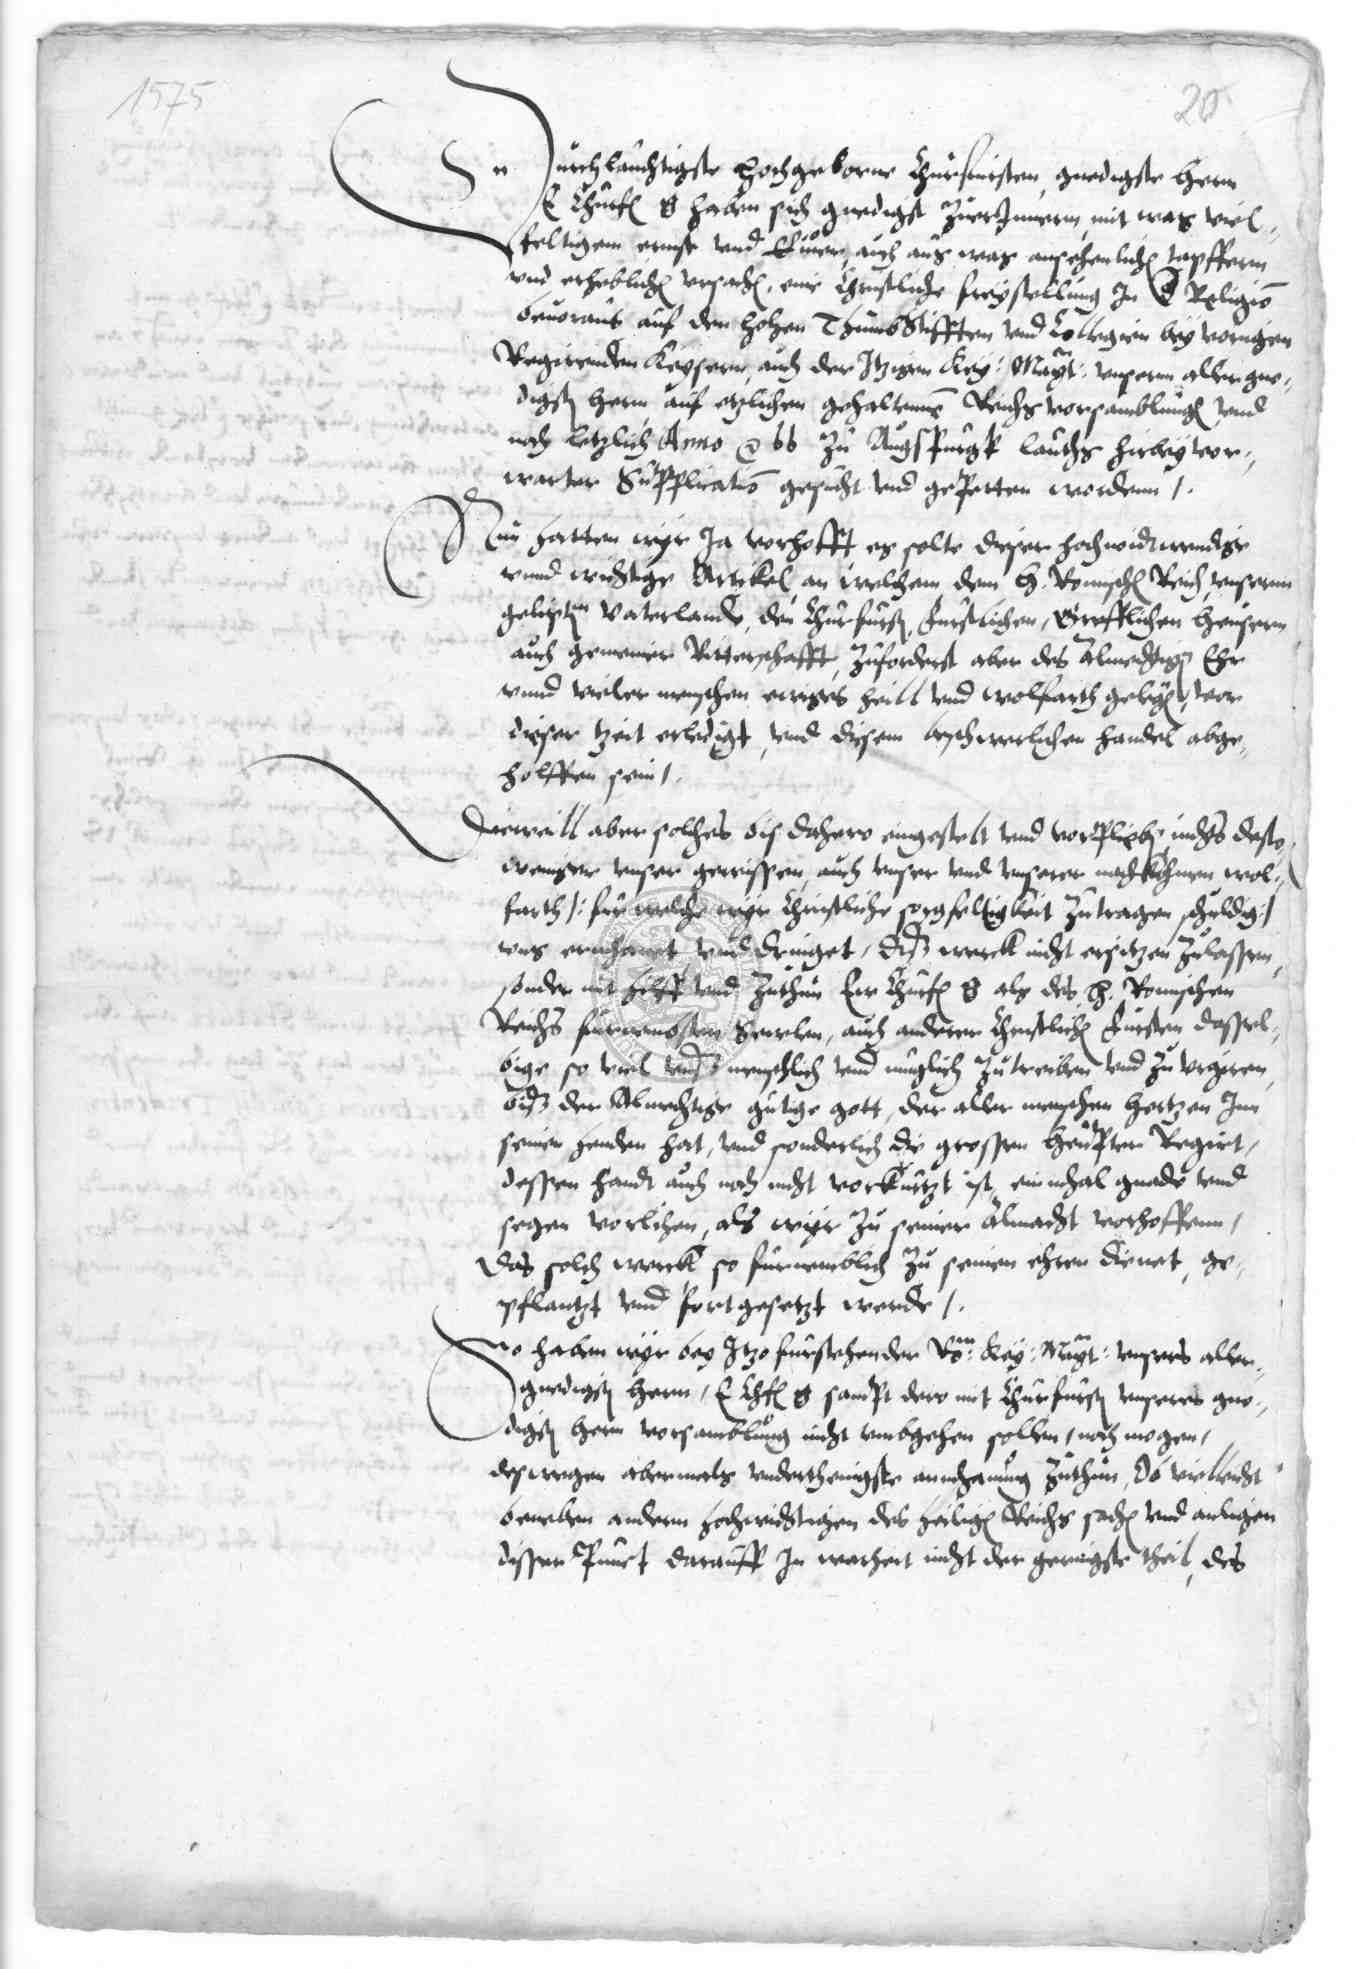 1575
20
Durchlauchtigste Hochgeborne Churfursten, gnedigste Hern
E Churf G haben sich gnedigst ZuerInnern, mit was viel-
feltigem ernst vnd auch aus was ansehenlich tapffern
vnd erheblich vrsach, eine Christliche freystellung In d Religio
beuoraus auf den hohen ThumbStifften vnd Collegien bey vorigen
Regirenden Keysern, auch der Itzigen Key: Mayt: vnserm aller gne-
digst Hern auf etzlichen gehaltenen Reichs vorsamblung vnd
noch letzlich Anno 66 Zu Augspurgk lauths hirbey vor-
warter Supplicatio gesucht vnd gepetten wordenn /.
Nun hatten wyr Ja vorhofft es solte dieser hochnotwendige
vnnd wichtige Artikel an welchem dem H. Romisch Reich, vnserm
geliptn Vaterlande, den Churfurst, furstlichen, Grefflichen Heusern
auch gemeiner Ritterschafft, Zuforderst aber des Almechtign Ehr
vnnd vieler menschen ewiges heill vnd wolfarth geleg, vor
dieser tzeit erledigt, vnd diesem beschwerlichen handel abge-
holffen sein /.
Dieweill aber solches bis dahero eingestelt vnd vorplieb, nichts desto
weniger vnser gewissen, auch vnser vnd vnserer nachkohmen wol-
farth /: fur welche wyr Christliche sorgfeltigkeit Zutragen schuldig :/
vns vnd dringet, diß werck nicht ersitzen Zulassen,
sonder mit hilff vnd Zuthun Ew Churf G als des H. Romischen
Reichs furnemosten Seulen, auch anderer Christlich Fursten dassel-
bige so viel menschlich vnd muglich Zu treiben vnd Zu vrgiren,
biß der Almechtige gutige gott, der aller menschen Hertzen Inn
seinen henden hat, vnd sonderlich die grossen Heupter Regirt,
dessen handt auch noch nicht vorkurtzt ist, ein mhal gnade vnd
segen vorlihen, als wyr Zu seiner Almacht vorhoffenn,
Das solch werck so furnemblich Zu seinen ehren dienet, ge-
pflantzt vnd fort gesetzt werde /.
So haben wyr bey Itzo furstehender Ro: Key: Mayt: vnsers aller-
gnedigst Hern, E Chf G sampt dero mit Churfurst vnserer gne-
digst Hern vorsamblung nicht vmbgehen sollen, noch mogen,
deswegen abermals vnderthenigste anmhanung Zuthun, Ob vielleicht
beneben andern hochwichtigen des heilig Reichs sach vnd anligen
dieser Punct darauff In warheit nicht der geringste theil, des